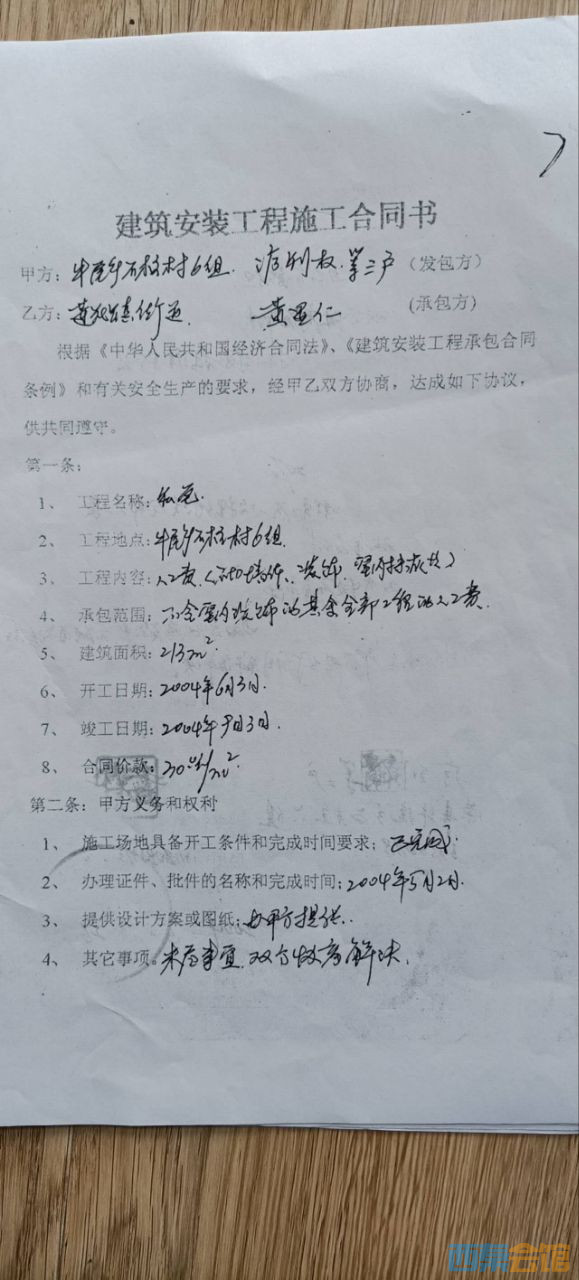 建筑安装工程施工合同书
甲方：牛尾乡石柱村6组. 权. 等三户（发包方）
乙方： 黄 仁 （承包方）
根据《中华人民共和国经济合同法》、《建筑安装工程承包合同
条例》和有关安全生产的要求，经甲乙双方协商，达成如下协议，
供共同遵守。
第一条：
1、 工程名称：私宅.
2、 工程地点：牛尾乡石柱村6组.
3、 工程内容：人工费
4、 承包范围：不含室内装饰的其余全部工程的人工费.
5、 建筑面积：213m².
6、 开工日期：2004年6月3日.
7、 竣工日期：2004年9月3日.
8、 合同价款：/m²
第二条：甲方义务和权利
1、 施工场地具备开工条件和完成时间要求；已完成.
2、 办理证件、批件的名称和完成时间：2004年5月2日.
3、 提供设计方案或图纸：由甲方提供.
4、 其它事项。未尽事宜，双方协商解决.
西祠会馆